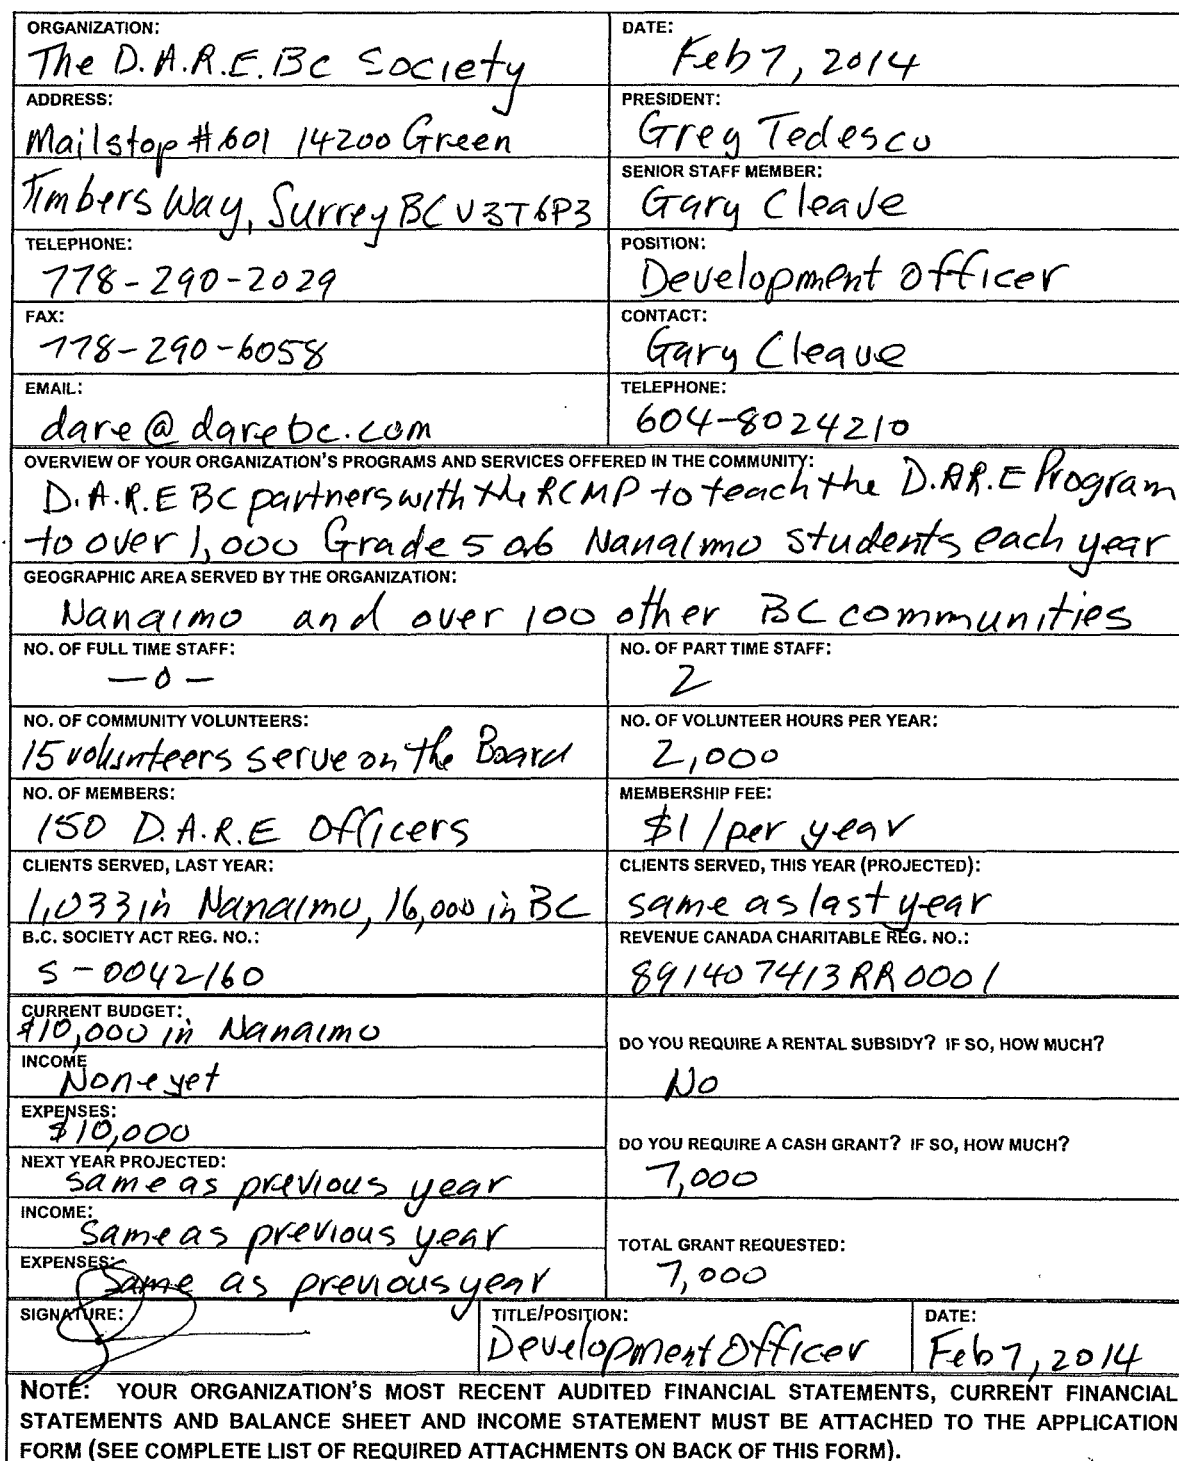 ORGANIZATION:
The D.A.R.E. BC Society
DATE:
Feb 7, 2014
ADDRESS:
Mailstop #601 14200 Green
Timbers Way, Surrey BC V3T6P3
PRESIDENT:
Greg Tedesco
SENIOR STAFF MEMBER:
Gary Cleave
TELEPHONE:
778-290-2029
POSITION:
Development Officer
FAX:
778-290-6058
CONTACT:
Gary Cleave
EMAIL:
dare@darebc.com
TELEPHONE:
604-8024210
OVERVIEW OF YOUR ORGANIZATION'S PROGRAMS AND SERVICES OFFERED IN THE COMMUNITY:
D.A.R.E BC partners with the RCMP to teach the D.A.R.E Program
to over 1,000 Grade 5 or 6 Nanaimo students each year
GEOGRAPHIC AREA SERVED BY THE ORGANIZATION:
Nanaimo and over 100 other BC communities
NO. OF FULL TIME STAFF:
-0-
NO. OF PART TIME STAFF:
2
NO. OF COMMUNITY VOLUNTEERS:
15 volunteers serve on the Board
NO. OF VOLUNTEER HOURS PER YEAR:
2,000
NO. OF MEMBERS:
150 D.A.R.E Officers
MEMBERSHIP FEE:
$1/per year
CLIENTS SERVED, LAST YEAR:
1,033 in Nanaimo, 16,000 in BC
CLIENTS SERVED, THIS YEAR (PROJECTED):
same as last year
B.C. SOCIETY ACT REG. NO.:
S-0042160
REVENUE CANADA CHARITABLE REG. NO.:
891407413RR0001
CURRENT BUDGET:
$10,000 in Nanaimo
INCOME
None yet
DO YOU REQUIRE A RENTAL SUBSIDY? IF SO, HOW MUCH?
No
EXPENSES:
$10,000
NEXT YEAR PROJECTED:
same as previous year
DO YOU REQUIRE A CASH GRANT? IF SO, HOW MUCH?
7,000
INCOME:
Same as previous year
EXPENSES:
Same as previous year
TOTAL GRANT REQUESTED:
7,000
SIGNATURE:
TITLE/POSITION:
Development Officer
DATE:
Feb 7, 2014
NOTE: YOUR ORGANIZATION'S MOST RECENT AUDITED FINANCIAL STATEMENTS, CURRENT FINANCIAL
STATEMENTS AND BALANCE SHEET AND INCOME STATEMENT MUST BE ATTACHED TO THE APPLICATION
FORM (SEE COMPLETE LIST OF REQUIRED ATTACHMENTS ON BACK OF THIS FORM).